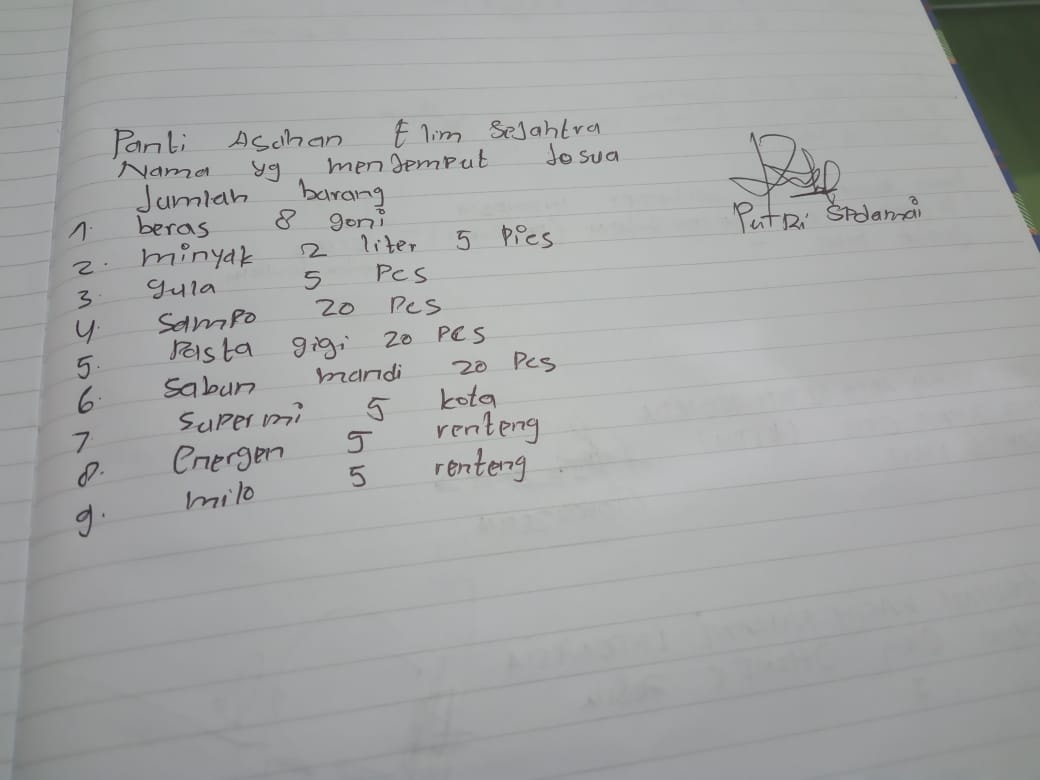 Panti Asuhan Elim Sejahtra
Nama yg menjemput Josua
Jumlah barang
1. beras 8 goni
2. minyak 2 liter 5 Pics
3. gula 5 Pcs
4. Sampo 20 Pcs
5. Pasta gigi 20 Pcs
6. Sabun mandi 20 Pcs
7 Supermi 5 kota
8. Energen 5 renteng
9. milo 5 renteng
PutRi